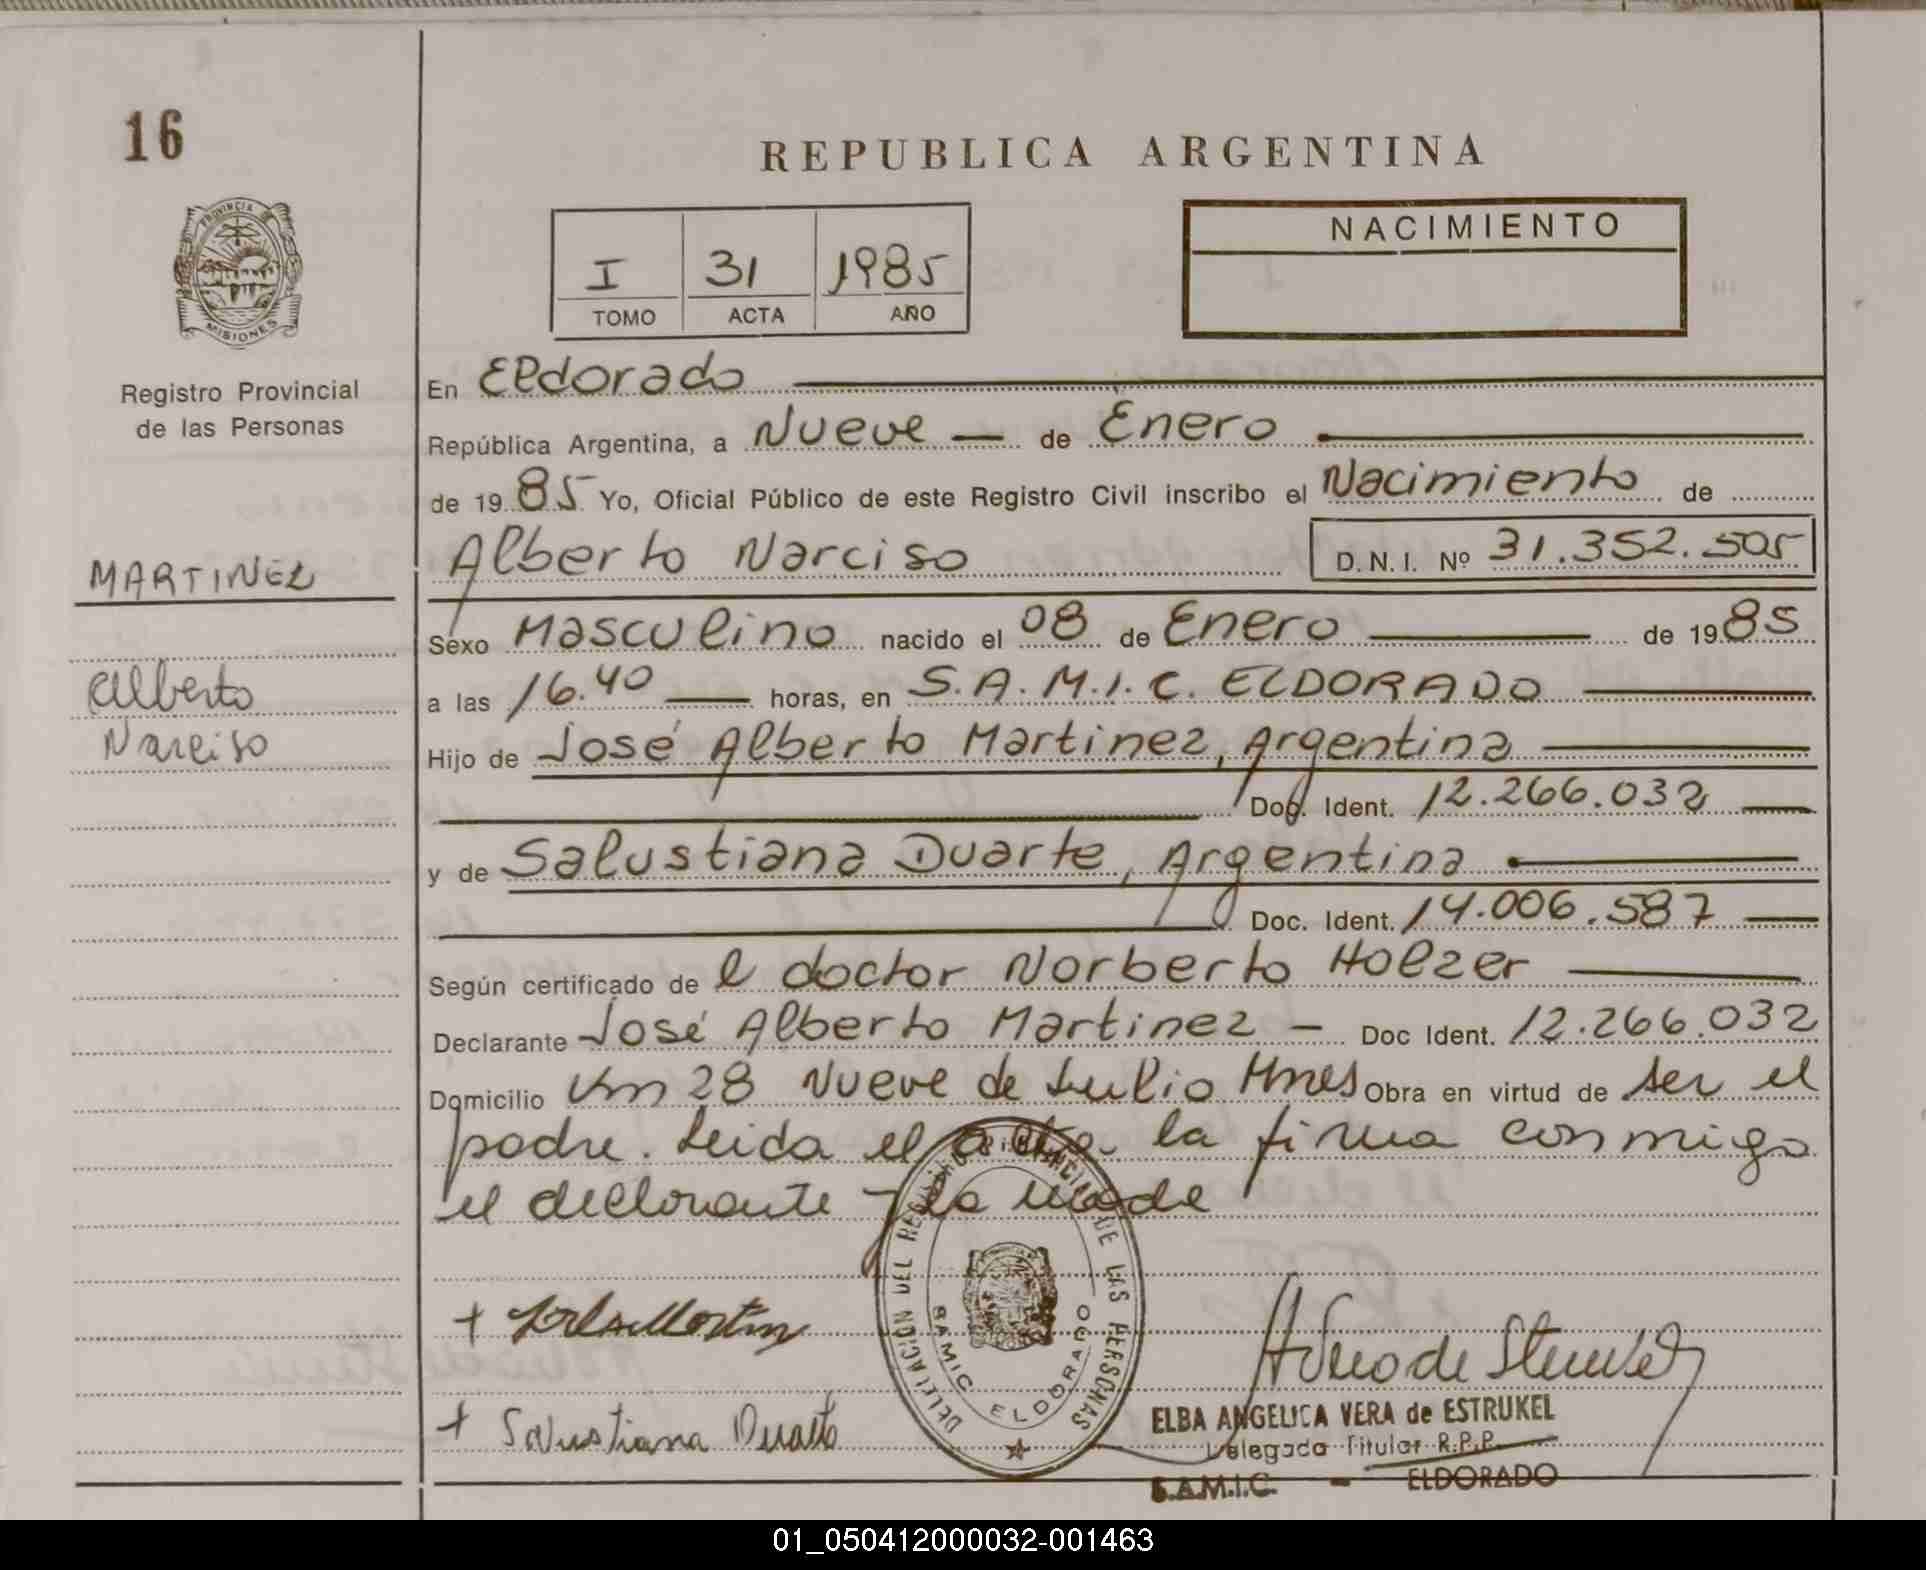 16
REPUBLICA ARGENTINA
PROVINCIA DE
MISIONES
I 31 1985
TOMO ACTA AÑO
NACIMIENTO
Registro Provincial
de las Personas
En Eldorado
República Argentina, a Nueve de Enero
de 19 85 Yo, Oficial Público de este Registro Civil inscribo el Nacimiento de
MARTINEZ
Alberto Narciso D.N.I. Nº 31.352.505
Sexo Masculino nacido el 08 de Enero de 19 85
Alberto
Narciso
a las 16.40 horas, en S.A.M.I.C. ELDORADO
Hijo de José Alberto Martinez, Argentina
Doc. Ident. 12.266.032
y de Salustiana Duarte, Argentina
Doc. Ident. 14.006.587
Según certificado de el doctor Norberto Holzer
Declarante José Alberto Martinez Doc Ident. 12.266.032
Domicilio Km 28 Nueve de Julio Mnes Obra en virtud de ser el
padre. Leida el acta la firma conmigo
el declarante y la madre
DELEGACIÓN DEL REGISTRO PROVINCIAL DE LAS PERSONAS
SAMIC ELDORADO
+ Salustiana Duarte
ELBA ANGELICA VERA de ESTRUKEL
Delegada Titular R.P.P.
S.A.M.I.C. - ELDORADO
01_050412000032-001463